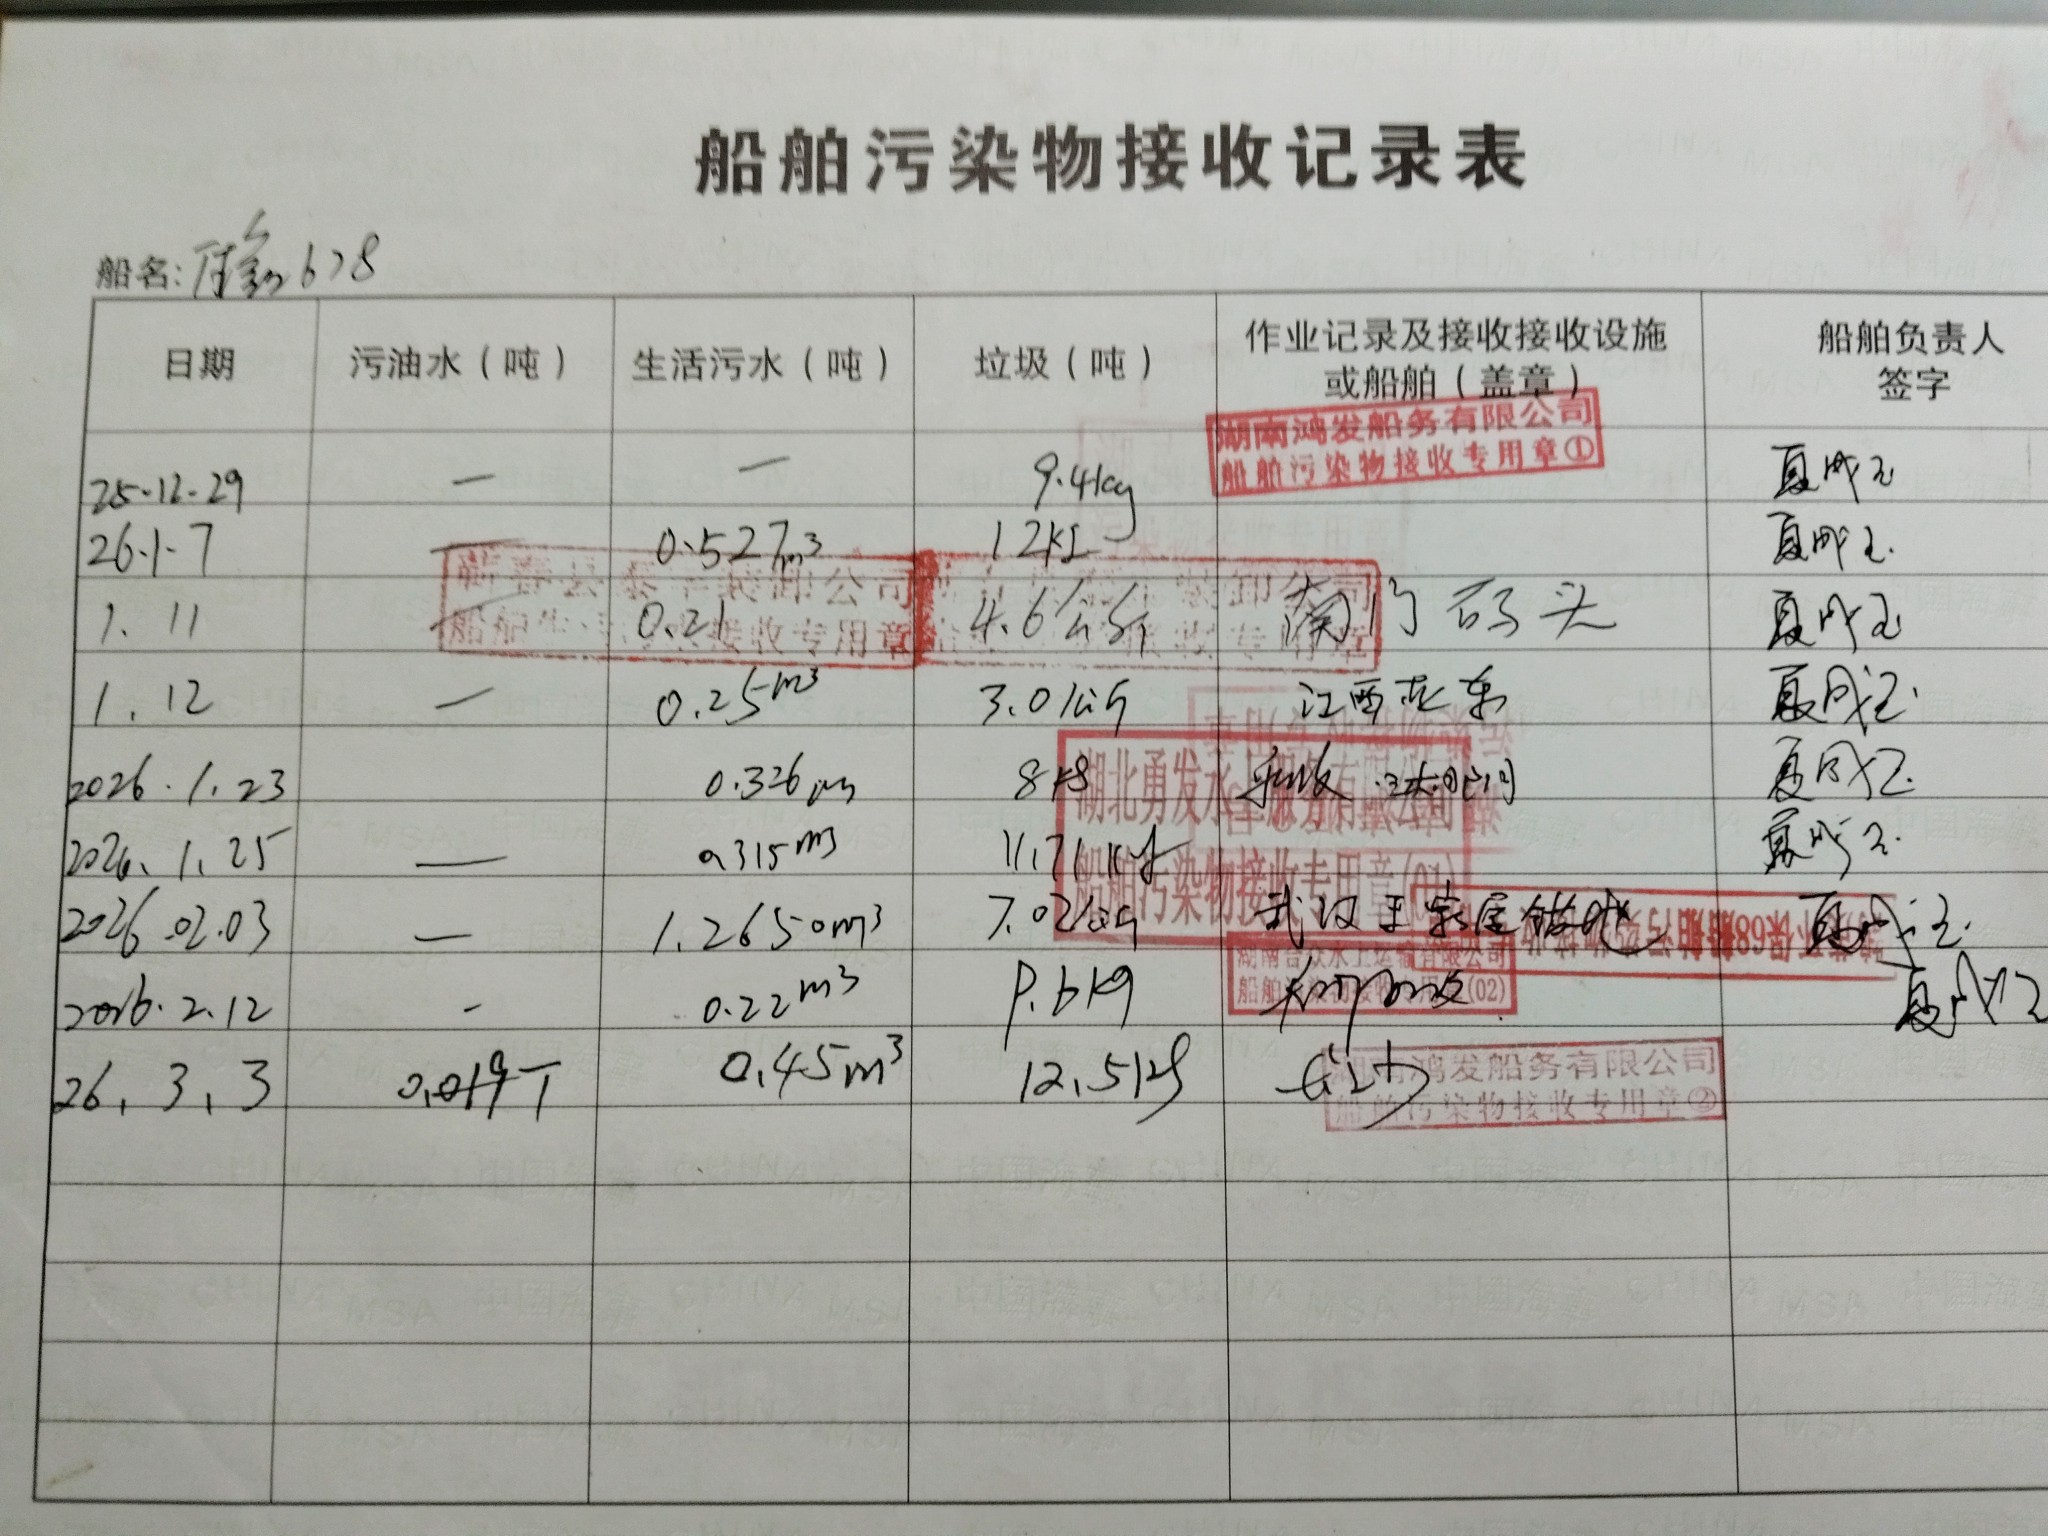 船舶污染物接收记录表
船名: 678
日期 污油水（吨） 生活污水（吨） 垃圾（吨） 作业记录及接收接收设施或船舶（盖章） 船舶负责人签字
湖南鸿发船务有限公司
船舶污染物接收专用章①
25.12.29 — — 9.4kg 夏成玉
26.1.7 — 0.527m³ 12kg 夏成玉
蕲春县 装卸公司
船舶 接收专用章
1.11 — 0.21 4.6公斤 闸门码头 夏成玉
1.12 — 0.25m³ 3.0公斤 江西 夏成玉
2026.1.23 0.326m 8kg 夏成玉
湖北勇发水上服务有限公司
船舶污染物接收专用章(01)
2026.1.25 — 0.315m³ 11.71kg 夏成玉
2026.02.03 — 1.2650m³ 7.02公斤 武汉王家屋锚地 夏成玉
湖南合众水上运输有限公司
船舶污染物接收专用章(02)
2026.2.12 - 0.22m³ 9.6kg 夏成玉
26.3.3 0.019T 0.45m³ 12.5kg
湖南鸿发船务有限公司
船舶污染物接收专用章②